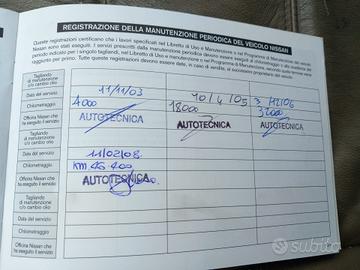 REGISTRAZIONE DELLA MANUTENZIONE PERIODICA DEL VEICOLO NISSAN
Queste registrazioni certificano che i lavori specificati nel Libretto di Uso e Manutenzione e nel Programma di Manutenzione del veicolo
Nissan sono stati eseguiti. I servizi prescritti dalla manutenzione periodica devono essere eseguiti al chilometraggio o alla scadenza
prescritti per i singoli tagliandi, indicati nel Libretto di Uso e Manutenzione e nel Programma di Manutenzione del veicolo,
per primo. Tutte queste registrazioni devono essere date, in caso di vendita, al successivo proprietario del veicolo.
Tagliando
di manutenzione
c/o cambio olio
Data del servizio 11/11/03 10/4/05
Chilometraggio 4000 18000
Officina Nissan che
ha eseguito il servizio AUTOTECNICA AUTOTECNICA AUTOTECNICA
Tagliando
di manutenzione
c/o cambio olio
Data del servizio 11/02/08
Chilometraggio km 46.400
Officina Nissan che
ha eseguito il servizio AUTOTECNICA
Tagliando
di manutenzione
c/o cambio olio
Data del servizio
Chilometraggio
Officina Nissan che
ha eseguito il servizio
subito